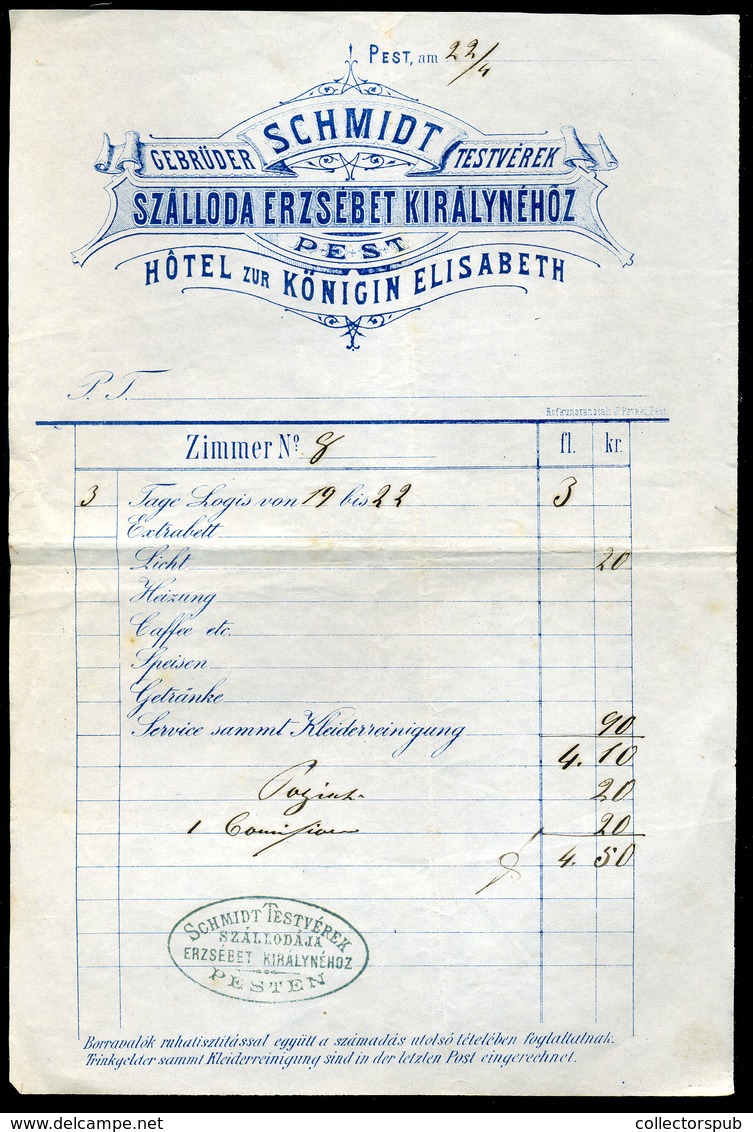 PEST, am 22/4
SCHMIDT
GEBRÜDER TESTVÉREK
SZÁLLODA ERZSÉBET KIRÁLYNÉHÓZ
PEST
HÔTEL ZUR KÖNIGIN ELISABETH
P. T.
Hofkunstanstalt
Pest.
Zimmer Nº 8 fl. kr.
3 Tage Logis von 19 bis 22 3
Extrabett
Licht 20
Heizung
Caffee etc.
Speisen
Getränke
Service sammt Kleiderreinigung 90
4. 10
20
1 20
4. 50
SCHMIDT TESTVÉREK
SZÁLLODÁJA
ERZSÉBET KIRÁLYNÉHOZ
PESTEN
Borravalók ruhatisztitással együtt a számadás utolsó tételében foglaltatnak.
Trinkgelder sammt Kleiderreinigung sind in der letzten Post eingerechnet.
collectorspub